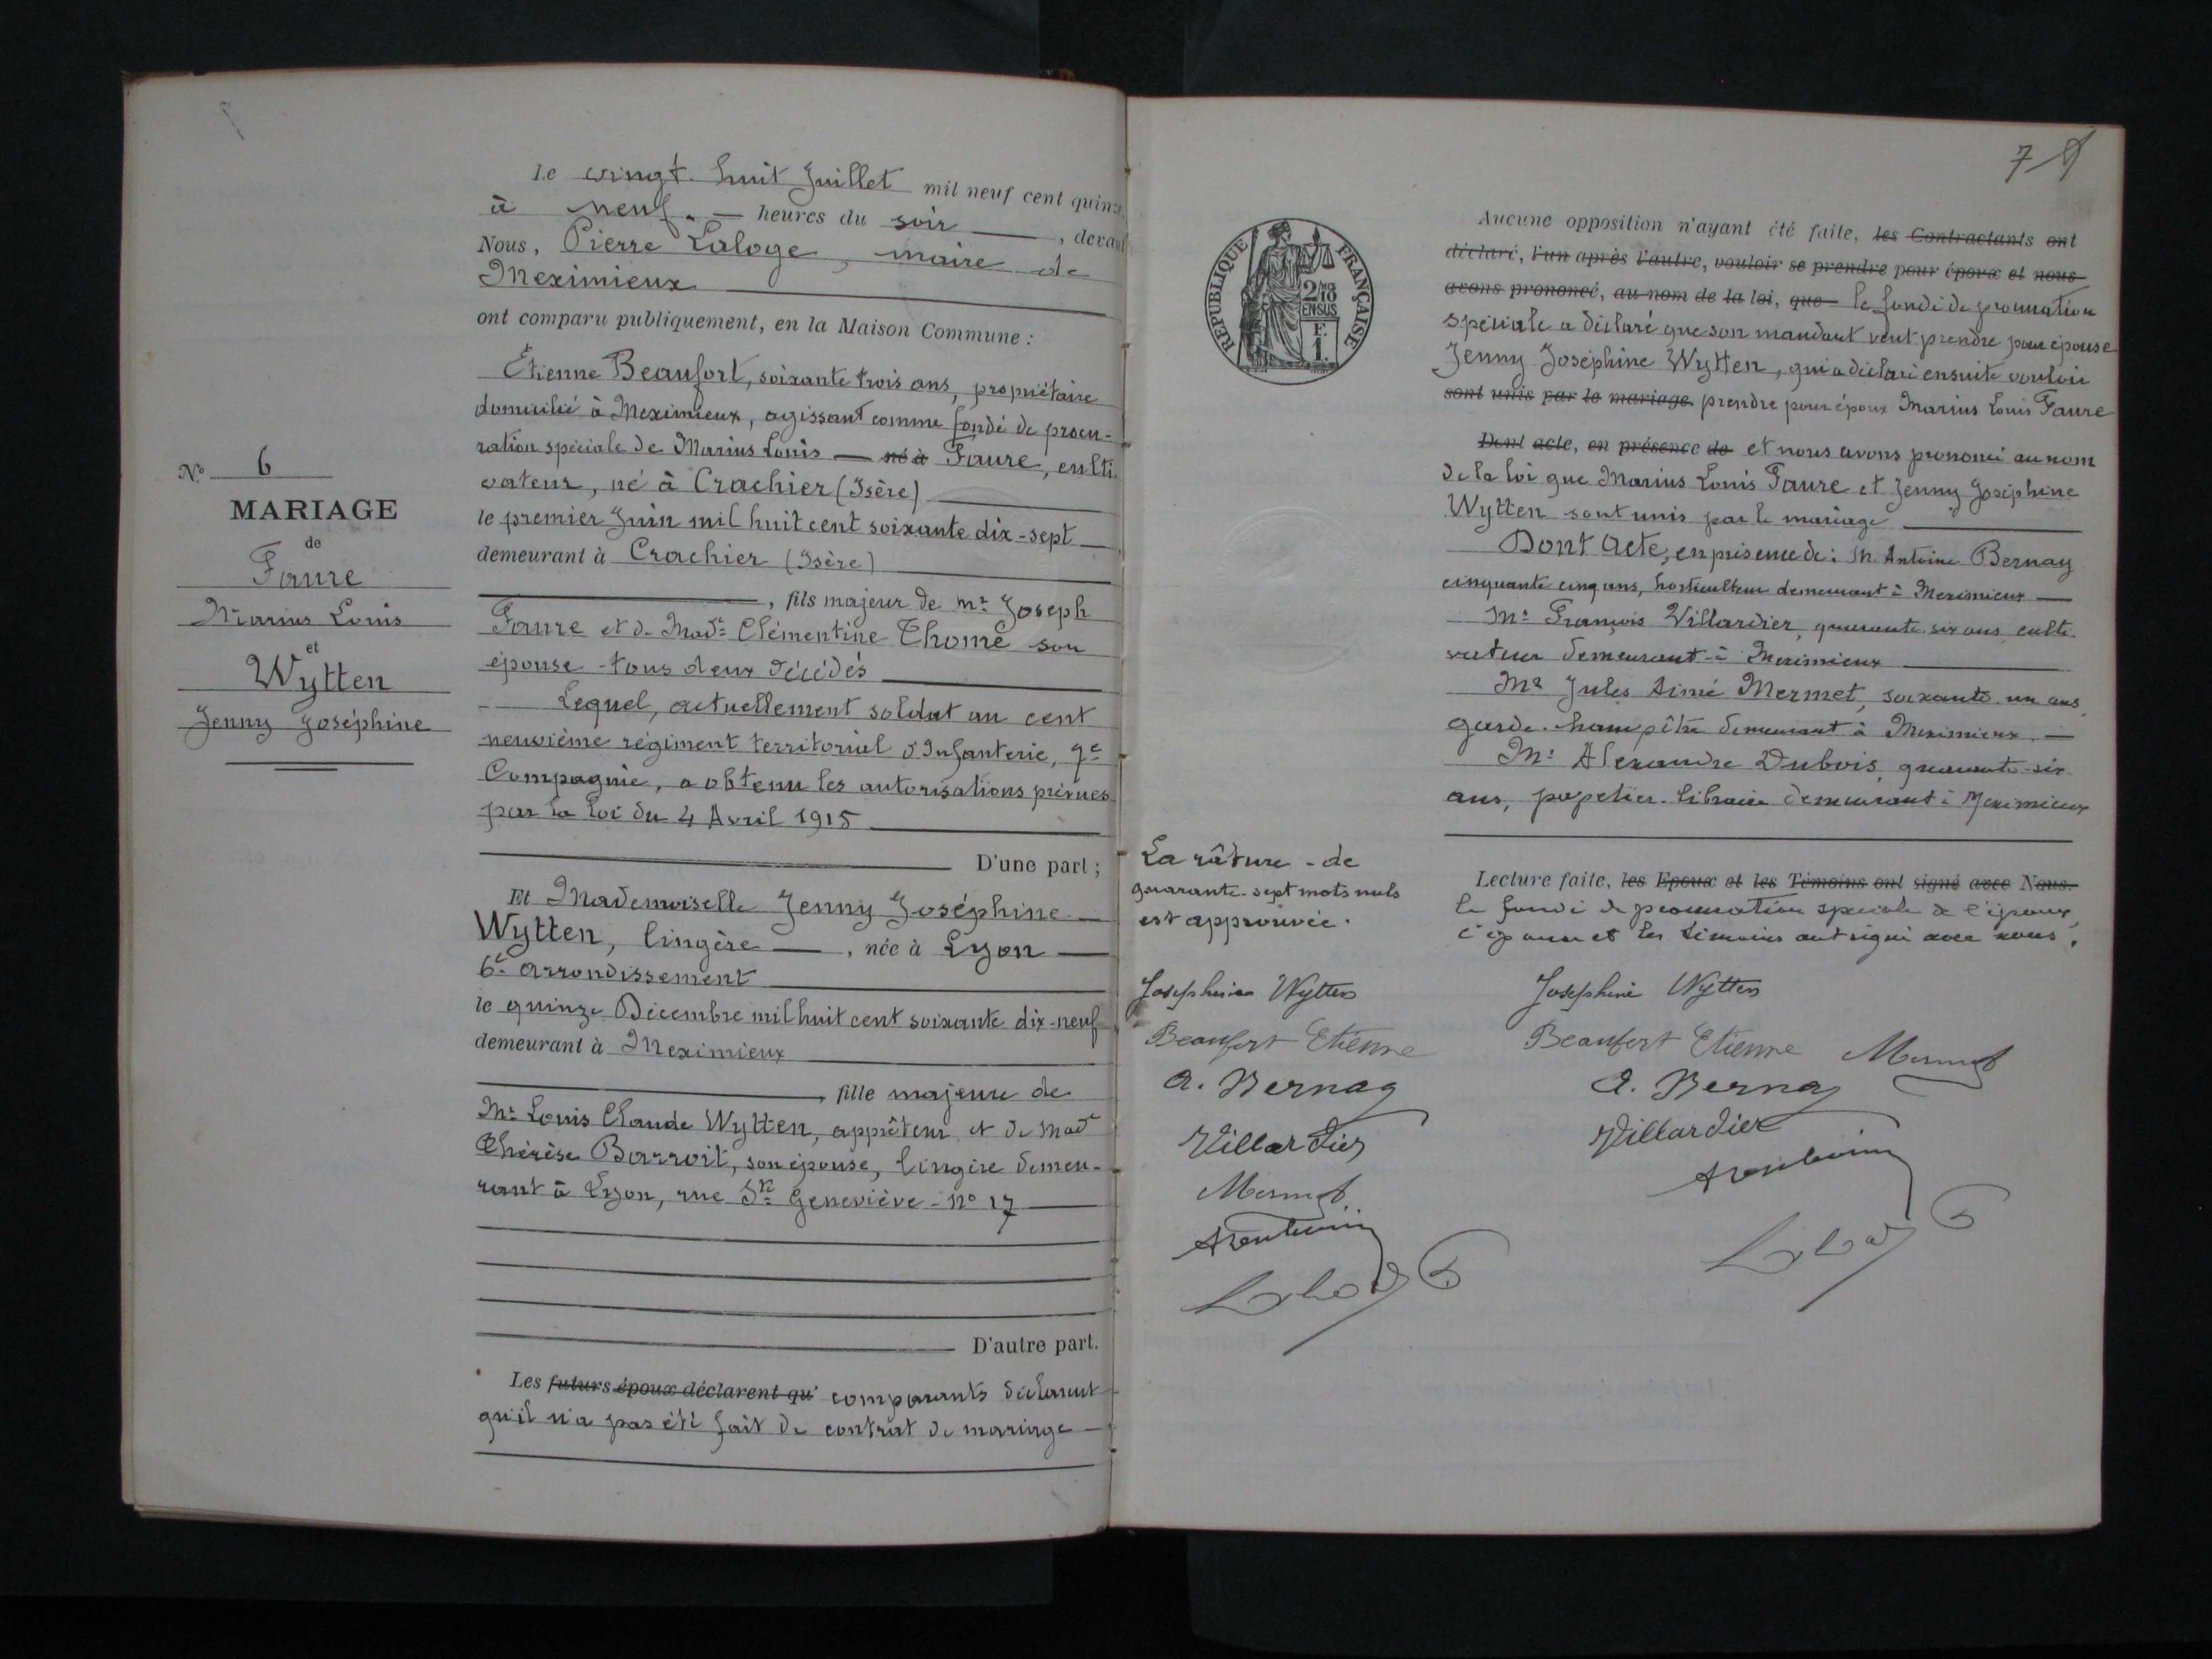 N° 6
MARIAGE
de
Faure
Marius Louis
et
Wytten
Jenny Joséphine
Le vingt-huit Juillet mil neuf cent quinze,
à neuf — heures du soir —, devant
Nous, Pierre Laloge, maire de
Meximieux
ont comparu publiquement, en la Maison Commune :
Etienne Beaufort, soixante trois ans, propriétaire
domicilié à Meximieux, agissant comme fondé de procu-
ration spéciale de Marius Louis — né à Faure, culti-
vateur, né à Crachier (Isère)
le premier Juin mil huit cent soixante dix-sept
demeurant à Crachier (Isère)
, fils majeur de Mr Joseph
Faure et de Made Clémentine Thomé son
épouse - tous deux décédés
Lequel, actuellement soldat au cent
neuvième régiment territorial d'Infanterie, 7e
Compagnie, a obtenu les autorisations prévues
par la loi du 4 Avril 1915
D'une part ;
Et Mademoiselle Jenny Joséphine
Wytten, lingère —, née à Lyon
6e arrondissement
le quinze Décembre mil huit cent soixante dix-neuf
demeurant à Meximieux
, fille majeure de
Mr Louis Claude Wytten, apprêteur et de Made
Thérèse Barroit, son épouse, lingère demeu-
rant à Lyon, rue Ste Geneviève - n° 17
D'autre part.
Les futurs époux déclarent qu' comparants déclarent
qu'il n'a pas été fait de contrat de mariage
7
REPUBLIQUE FRANÇAISE
2/10
EN SUS
F.
1.
Aucune opposition n'ayant été faite, les Contractants ont
déclaré, l'un après l'autre, vouloir se prendre pour époux et nous
avons prononcé, au nom de la loi, que le fondé de procuration
spéciale a déclaré que son mandant veut prendre pour épouse
Jenny Joséphine Wytten, qui a déclaré ensuite vouloir
sont unis par le mariage. prendre pour époux Marius Louis Faure
Dont acte, en présence de et nous avons prononcé au nom
de la loi que Marius Louis Faure et Jenny Joséphine
Wytten sont unis par le mariage
Dont Acte, en présence de : M. Antoine Bernay
cinquante cinq ans, horticulteur demeurant à Meximieux
Mr François Villardier, quarante-six ans, culti-
vateur demeurant à Meximieux
Mr Jules Aimé Mermet, soixante un ans,
garde-champêtre demeurant à Meximieux
Mr Alexandre Dubois, quarante-six
ans, papetier-libraire demeurant à Meximieux
Lecture faite, les Epoux et les Témoins ont signé avec Nous.
le fondé de procuration spéciale de l'époux,
l'épouse et les témoins ont signé avec nous.
La râture de
quarante-sept mots nuls
est approuvée.
Joséphine Wytten
Beaufort Etienne
A. Bernay
Villardier
Mermet
Joséphine Wytten
Beaufort Etienne Mermet
A. Bernay
Villardier